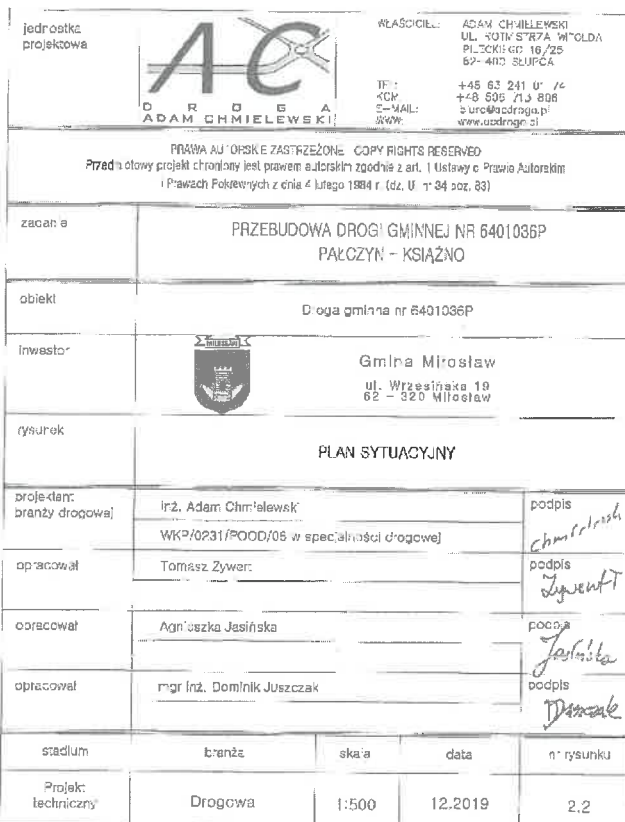 jednostka
projektowa
AC
DROGA
ADAM CHMIELEWSKI
WŁAŚCICIEL: ADAM CHMIELEWSKI
UL. ROTMISTRZA WITOLDA
PILECKIEGO 16/25
62-400 SŁUPCA
TEL.: +48 63 241 01 74
KOM.: +48 506 713 808
E-MAIL: biuro@acdroga.pl
WWW: www.acdroga.pl
PRAWA AUTORSKIE ZASTRZEŻONE COPY RIGHTS RESERVED
Przedmiotowy projekt chroniony jest prawem autorskim zgodnie z art. 1 Ustawy o Prawie Autorskim
i Prawach Pokrewnych z dnia 4 lutego 1984 r. (dz. U. nr 34 poz. 83)
zadanie
PRZEBUDOWA DROGI GMINNEJ NR 6401036P
PAŁCZYN – KSIĄŻNO
obiekt
Droga gminna nr 6401036P
inwestor
MIŁOSŁAW
Gmina Miłosław
ul. Wrzesińska 19
62 – 320 Miłosław
rysunek
PLAN SYTUACYJNY
projektant
branży drogowej
inż. Adam Chmielewski
podpis
WKP/0231/POOD/06 w specjalności drogowej
opracował
Tomasz Żywert
podpis
Żywert T
opracował
Agnieszka Jasińska
podpis
Jasińska
opracował
mgr inż. Dominik Juszczak
podpis
stadium branża skala data nr rysunku
Projekt
techniczny Drogowa 1:500 12.2019 2.2